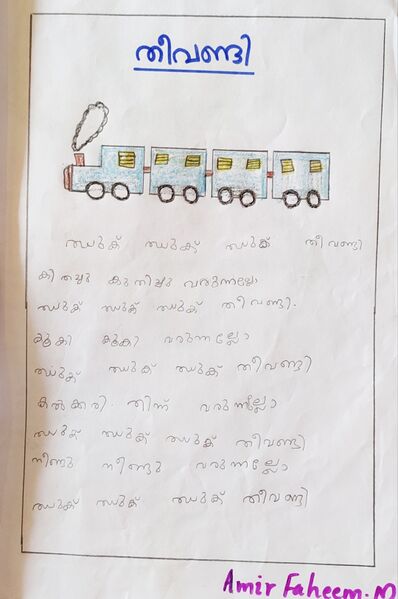 തീവണ്ടി
ഝുക് ഝുക് ഝുക് തീവണ്ടി
കിതച്ചു കുതിച്ചു വരുന്നല്ലോ
ഝുക് ഝുക് ഝുക് തീവണ്ടി.
കൂകി കൂകി വരുന്നല്ലോ
ഝുക് ഝുക് ഝുക് തീവണ്ടി
കൽക്കരി തിന്ന് വരുന്നല്ലോ
ഝുക് ഝുക് ഝുക് തീവണ്ടി
നീണ്ടു നീണ്ടു വരുന്നല്ലോ
ഝുക് ഝുക് ഝുക് തീവണ്ടി
Amir Faheem.M